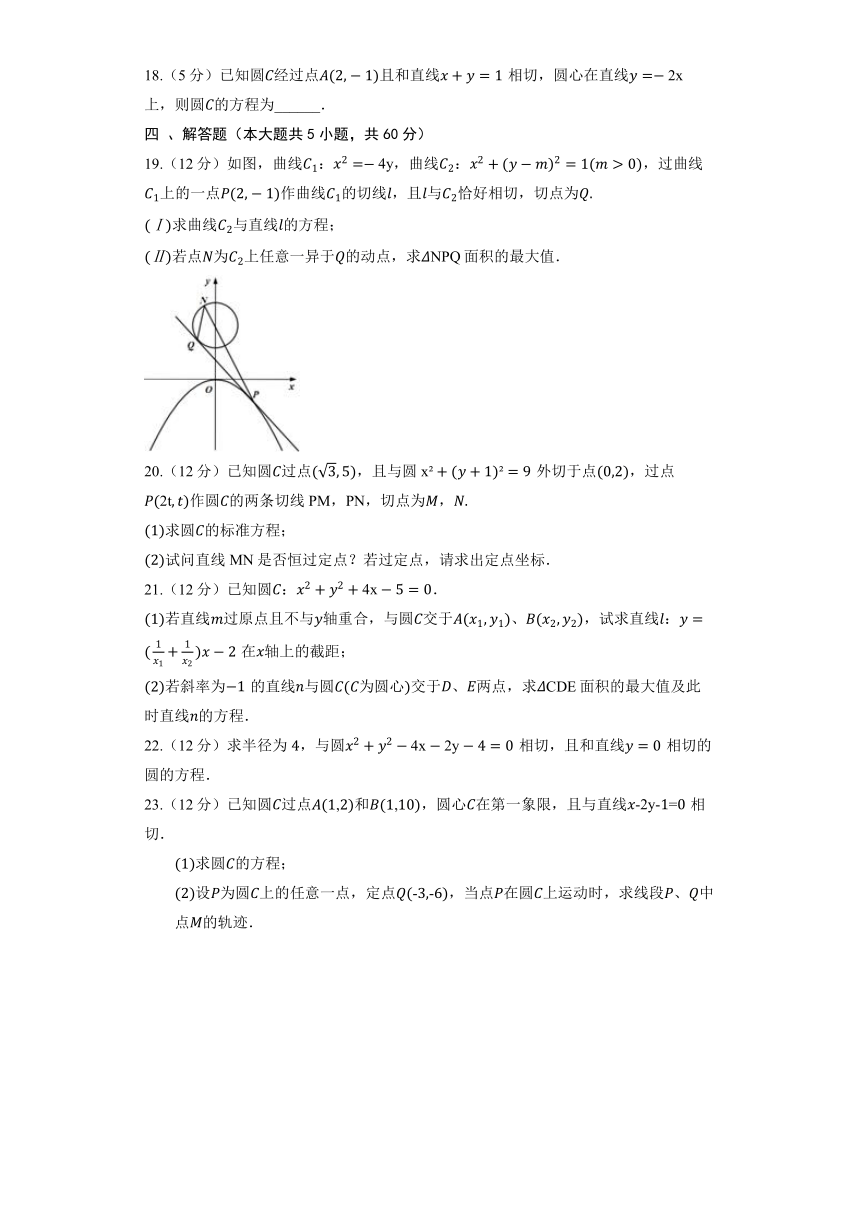 18.（5 分）已知圆𝐶经过点𝐴(2, − 1)且和直线𝑥 + 𝑦 = 1 相切，圆心在直线𝑦 =− 2x
上，则圆𝐶的方程为______．
四 、解答题（本大题共 5 小题，共 60 分）
19.（12 分）如图，曲线𝐶₁：𝑥² =− 4y，曲线𝐶₂：𝑥² + (𝑦 − 𝑚)² = 1(𝑚 > 0)，过曲线
𝐶₁上的一点𝑃(2, − 1)作曲线𝐶₁的切线𝑙，且𝑙与𝐶₂恰好相切，切点为𝑄.
(Ⅰ)求曲线𝐶₂与直线𝑙的方程；
(Ⅱ)若点𝑁为𝐶₂上任意一异于𝑄的动点，求𝛥NPQ 面积的最大值．
y
N
Q
O
x
P
20.（12 分）已知圆𝐶过点(√3, 5)，且与圆 x² + (𝑦 + 1)² = 9 外切于点(0,2)，过点
𝑃(2t, 𝑡)作圆𝐶的两条切线 PM，PN，切点为𝑀，𝑁.
(1)求圆𝐶的标准方程；
(2)试问直线 MN 是否恒过定点？若过定点，请求出定点坐标．
21.（12 分）已知圆𝐶：𝑥² + 𝑦² + 4x − 5 = 0．
(1)若直线𝑚过原点且不与𝑦轴重合，与圆𝐶交于𝐴(𝑥₁, 𝑦₁)、𝐵(𝑥₂, 𝑦₂)，试求直线𝑙：𝑦 =
(1/𝑥₁ + 1/𝑥₂)𝑥 − 2 在𝑥轴上的截距；
(2)若斜率为−1 的直线𝑛与圆𝐶(𝐶为圆心)交于𝐷、𝐸两点，求𝛥CDE 面积的最大值及此
时直线𝑛的方程．
22.（12 分）求半径为 4，与圆𝑥² + 𝑦² − 4x − 2y − 4 = 0 相切，且和直线𝑦 = 0 相切的
圆的方程．
23.（12 分）已知圆𝐶过点𝐴(1,2)和𝐵(1,10)，圆心𝐶在第一象限，且与直线𝑥-2y-1=0 相
切．
(1)求圆𝐶的方程；
(2)设𝑃为圆𝐶上的任意一点，定点𝑄(-3,-6)，当点𝑃在圆𝐶上运动时，求线段𝑃、𝑄中
点𝑀的轨迹．